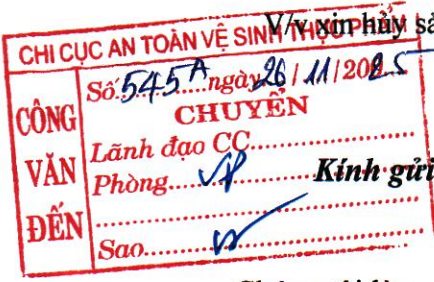 V/v xin hủy sả
CHI CỤC AN TOÀN VỆ SINH THỰC PHẨM
CÔNG VĂN ĐẾN
Số: 545A ngày 26/11/2025
CHUYỂN
Lãnh đạo CC
Phòng
Kính gửi
Sao